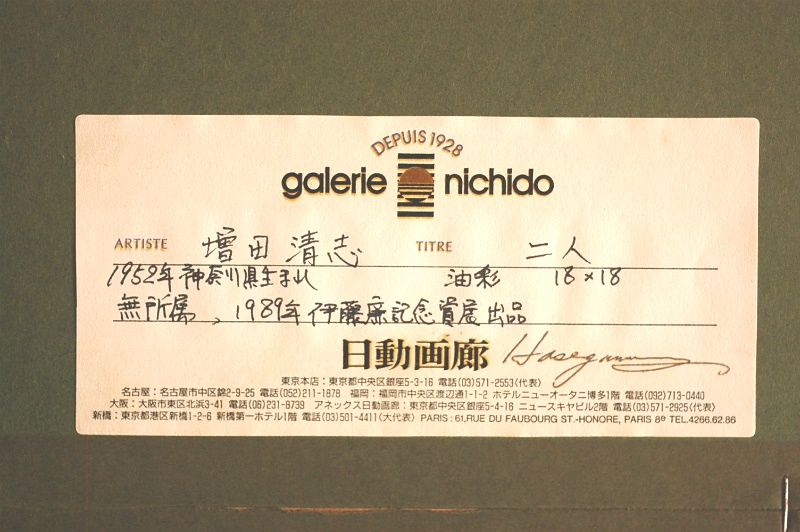 DEPUIS 1928
galerie nichido
ARTISTE 増田清志 TITRE 二人
1952年神奈川県生まれ 油彩 18×18
無所属、1989年伊藤廉記念賞展出品
日動画廊 Hasegawa
東京本店:東京都中央区銀座5-3-16 電話(03)571-2553(代表)
名古屋:名古屋市中区錦2-9-25 電話(052)211-1878 福岡:福岡市中央区渡辺通1-1-2 ホテルニューオータニ博多1階 電話(092)713-0440
大阪:大阪市東区北浜3-41 電話(06)231-8739 アネックス日動画廊:東京都中央区銀座5-4-16 ニュースキヤビル2階 電話(03)571-2925(代表)
新橋:東京都港区新橋1-2-6 新橋第一ホテル1階 電話(03)501-4411(大代表) PARIS:61,RUE DU FAUBOURG ST.-HONORE, PARIS 8e TEL.4266.62.86